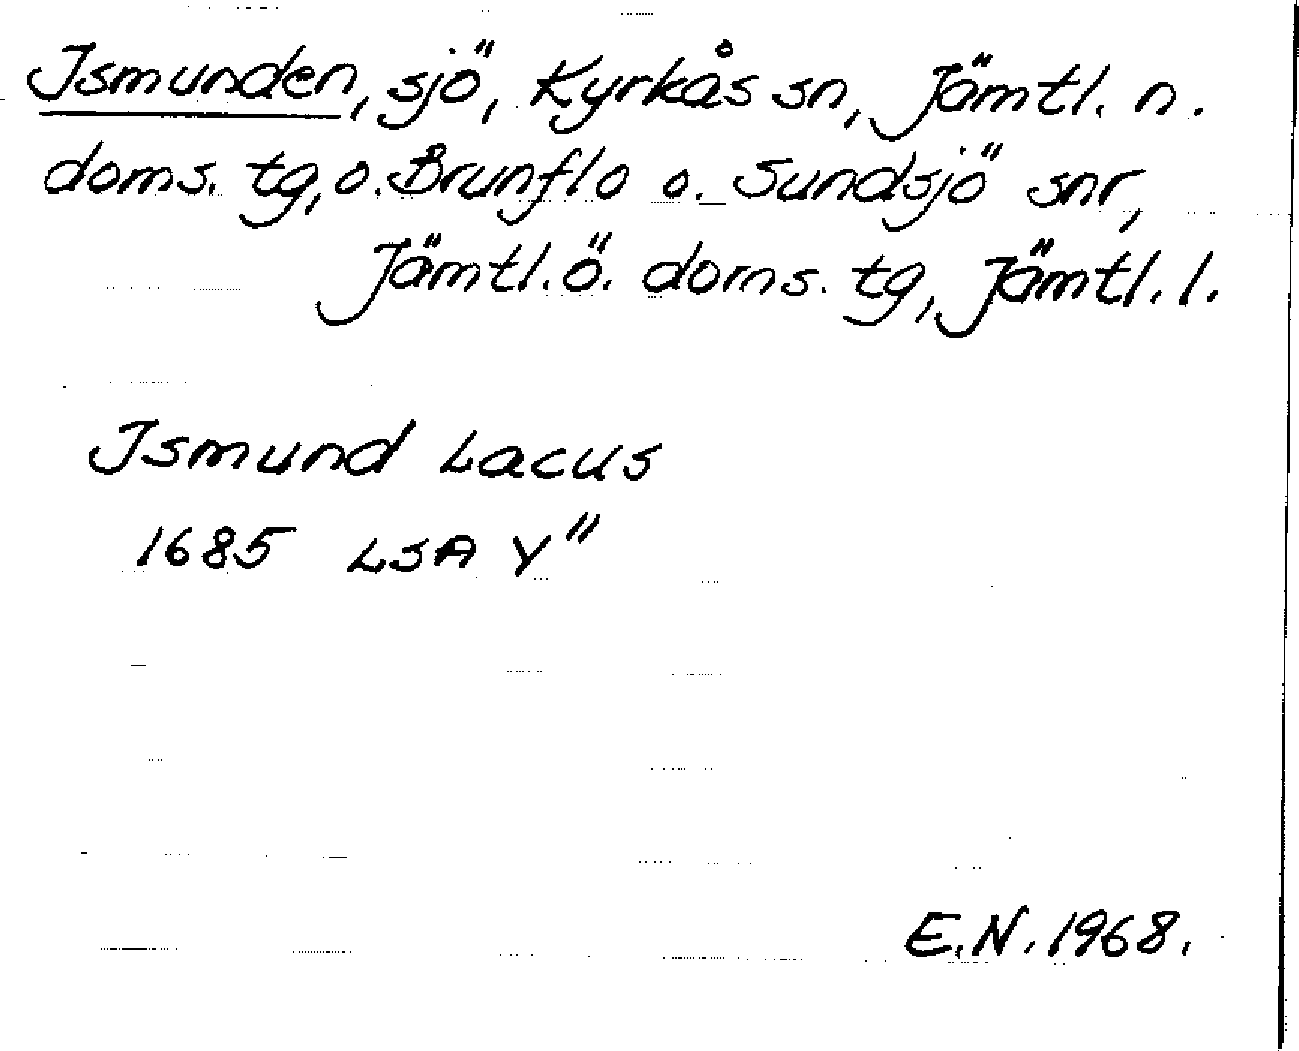 Ismunden, sjö, Kyrkås sn, Jämtl. n.
doms. tg, o. Brunflo o. Sundsjö snr,
Jämtl. ö. doms. tg, Jämtl. l.
Ismund Lacus
1685 LSA Y"
E.N. 1968.